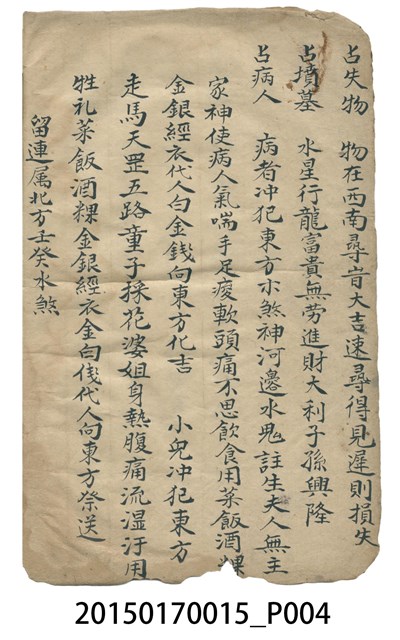 占失物　物在西南尋皆大吉速尋得見遲則損失
占墳墓　水星行龍富貴無劳進財大利子孫興隆
占病人　病者冲犯東方小煞神河邊水鬼註生夫人無主
家神使病人氣喘手足痠軟頭痛不思飲食用菜飯酒粿
金銀經衣代人白金錢向東方化吉　小兒冲犯東方
走馬天罡五路童子採花婆姐身熱腹痛流湿汙用
牲礼菜飯酒粿金銀經衣金白伐代人向東方祭送
留連属北方壬癸水煞
20150170015_P004